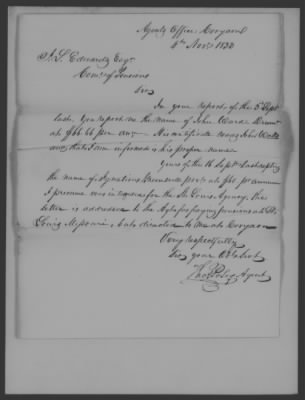 Agents Office, Corydon
4th Novr 1834
J. L. Edwards Esqr
Comr of Pensions
Sir
In your report of the 5 Sept
last. You report on the name of John Ward
at $66.66 per ann. His certificate says John
and that I am informed is his proper name
Yours of the 16 Septr last reporting
the name of Ignatious at $80 pr annum
I presume was intended for the St Louis Agency. the
letter is addressed to the Agt for paying pensions at St
Louis Missouri, but directed to me at Corydon
Very respectfully
Sir your Obt Sert
Agent